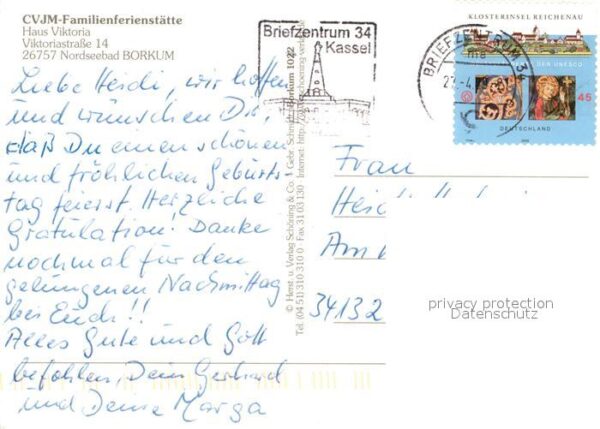 CVJM-Familienferienstätte
Haus Viktoria
Viktoriastraße 14
26757 Nordseebad BORKUM
Liebe Heidi, wir hoffen
und wünschen Dir,
daß Du einen schönen
und fröhlichen Geburts-
tag feierst. Herzliche
Gratulation! Danke
nochmal für den
gelungenen Nachmittag
bei Euch!!
Alles Gute und Gott
befohlen Dein Gerhard
und Deine Marga
© Herst. u. Verlag Schöning & Co. + Gebr. Schmidt Borkum 1022
Tel. (04 51) 310 310 0 · Fax 31 03 130 · Internet:
Briefzentrum 34
Kassel
BRIEFZENTRUM 34
KLOSTERINSEL REICHENAU
DER UNESCO
45
DEUTSCHLAND
Frau
Hei
Am
34132
privacy protection
Datenschutz